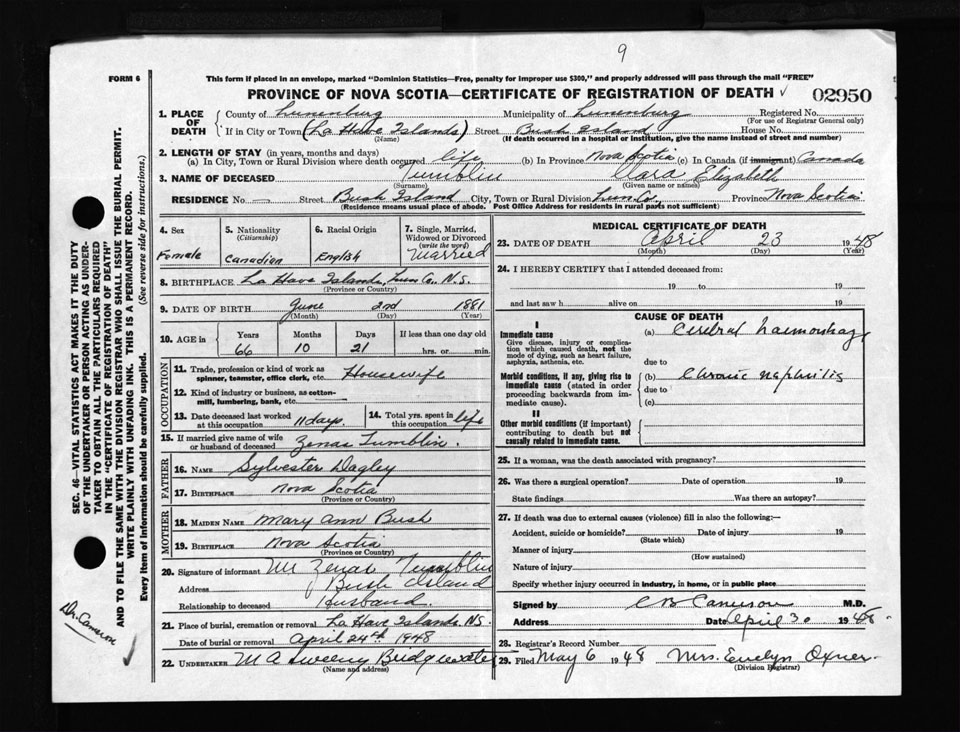 9
FORM 6
This form if placed in an envelope, marked "Dominion Statistics—Free, penalty for improper use $300," and properly addressed will pass through the mail "FREE"
PROVINCE OF NOVA SCOTIA—CERTIFICATE OF REGISTRATION OF DEATH ✓ 02950
1. PLACE OF DEATH
County of Lunenburg Municipality of Lunenburg Registered No.
(For use of Registrar General only)
If in City or Town (La Have Islands) Street Bush Island House No.
(Name) (If death occurred in a hospital or institution, give the name instead of street and number)
2. LENGTH OF STAY (in years, months and days)
(a) In City, Town or Rural Division where death occurred life (b) In Province Nova Scotia (c) In Canada (if immigrant) Canada
3. NAME OF DECEASED Tumblin Clara Elizabeth
(Surname) (Given name or names)
RESIDENCE No. — Street Bush Island City, Town or Rural Division Lun. Co, Province Nova Scotia
(Residence means usual place of abode. Post Office Address for residents in rural parts not sufficient)
4. Sex
Female
5. Nationality
(Citizenship)
Canadian
6. Racial Origin
English
7. Single, Married, Widowed or Divorced
(write the word)
Married
8. BIRTHPLACE La Have Islands, Lun Co. N.S.
(Province or Country)
9. DATE OF BIRTH June 2nd 1881
(Month) (Day) (Year)
10. AGE in Years Months Days If less than one day old
66 10 21 hrs. or min.
OCCUPATION
11. Trade, profession or kind of work as spinner, teamster, office clerk, etc. Housewife
12. Kind of industry or business, as cotton-mill, lumbering, bank, etc.
13. Date deceased last worked at this occupation 11 days.
14. Total yrs. spent in this occupation life
15. If married give name of wife or husband of deceased Zenas Tumblin.
FATHER
16. NAME Sylvester Dagley
17. BIRTHPLACE Nova Scotia
(Province or Country)
MOTHER
18. MAIDEN NAME Mary Ann Bush
19. BIRTHPLACE Nova Scotia
(Province or Country)
20. Signature of informant Mr Zenas Tumblin
Address Bush Island
Relationship to deceased Husband.
21. Place of burial, cremation or removal La Have Islands. N.S
Date of burial or removal April 24th 1948
22. UNDERTAKER M A Sweeny Bridgewater
(Name and address)
MEDICAL CERTIFICATE OF DEATH
23. DATE OF DEATH April 23 1948
(Month) (Day) (Year)
24. I HEREBY CERTIFY that I attended deceased from:
19 to 19
and last saw h alive on 19
CAUSE OF DEATH
I
Immediate cause
Give disease, injury or complication which caused death, not the mode of dying, such as heart failure, asphyxia, asthenia, etc.
(a) Cerebral haemorrhag
due to
Morbid conditions, if any, giving rise to immediate cause (stated in order proceeding backwards from immediate cause).
(b) Chronic nephritis
due to
(c)
II
Other morbid conditions (if important) contributing to death but not causally related to immediate cause.
25. If a woman, was the death associated with pregnancy?
26. Was there a surgical operation? Date of operation 19
State findings Was there an autopsy?
27. If death was due to external causes (violence) fill in also the following:—
Accident, suicide or homicide? Date of injury 19
(State which)
Manner of injury
(How sustained)
Nature of injury
Specify whether injury occurred in industry, in home, or in public place
Signed by C B Cameron M.D.
Address Date April 30 1948.
28. Registrar's Record Number
29. Filed May 6 1948 Mrs. Evelyn Oxner.
(Division Registrar)
SEC. 46—VITAL STATISTICS ACT MAKES IT THE DUTY
OF THE UNDERTAKER OR PERSON ACTING AS UNDER-
TAKER TO OBTAIN ALL THE PARTICULARS REQUIRED
IN THE "CERTIFICATE OF REGISTRATION OF DEATH"
AND TO FILE THE SAME WITH THE DIVISION REGISTRAR WHO SHALL ISSUE THE BURIAL PERMIT.
WRITE PLAINLY WITH UNFADING INK. THIS IS A PERMANENT RECORD.
Every item of information should be carefully supplied. (See reverse side for instructions.)
Dr. Cameron
✓